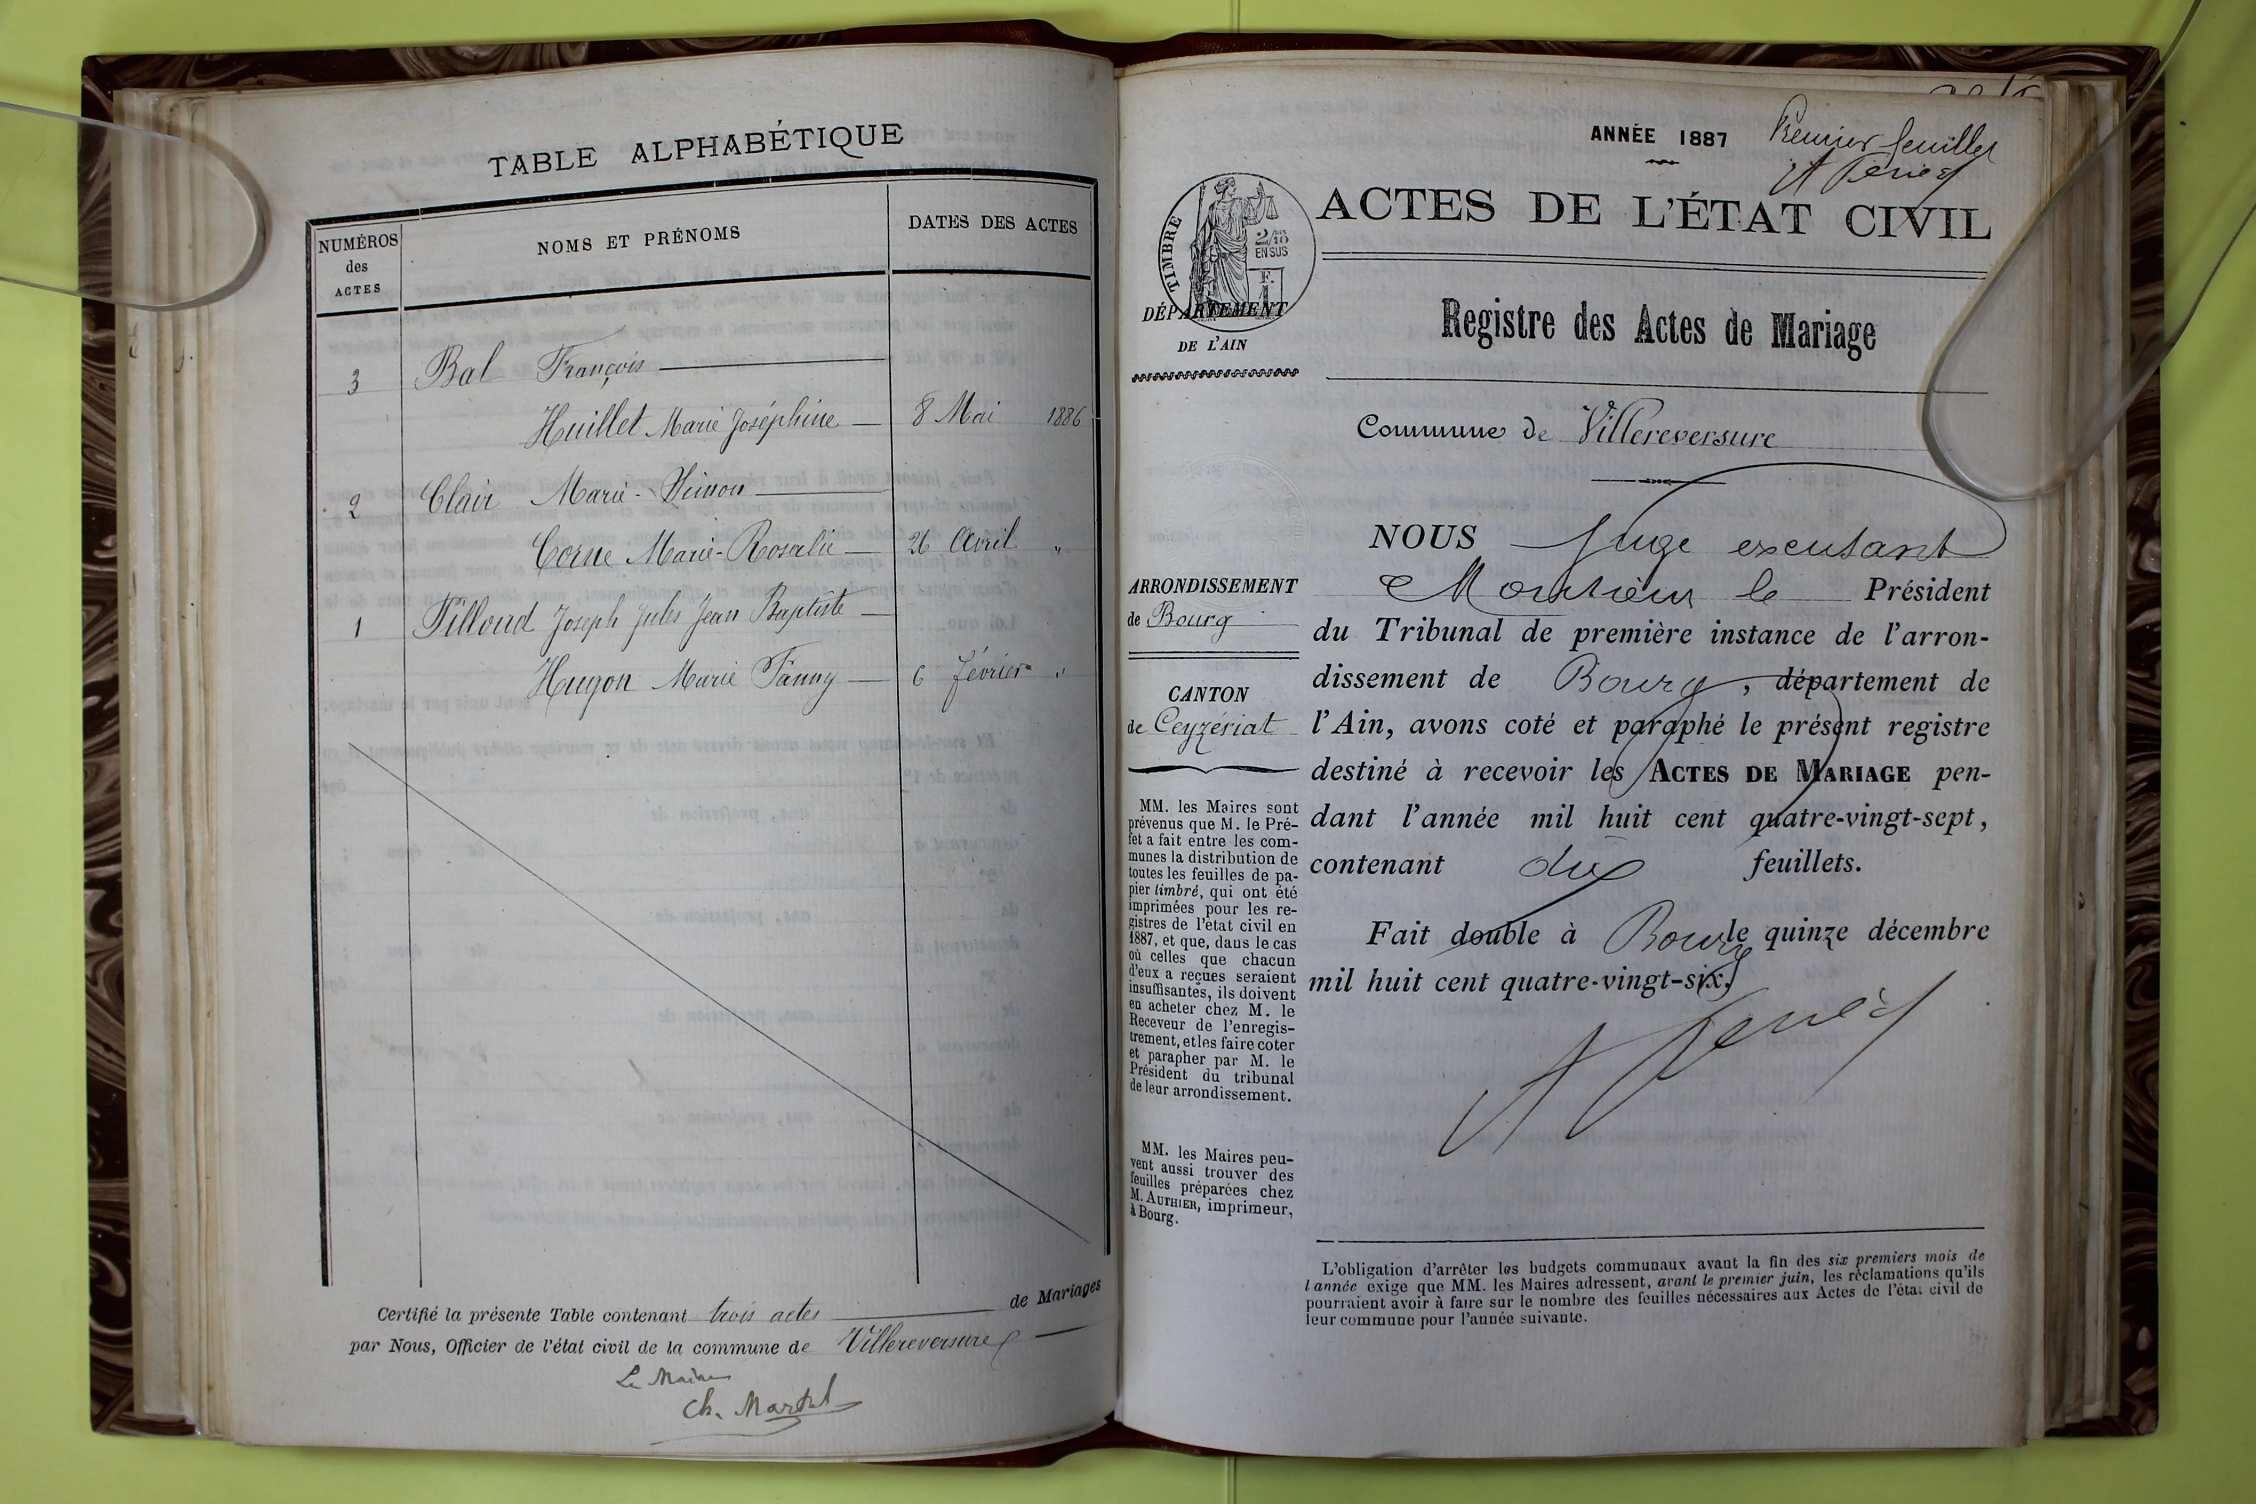 TABLE ALPHABÉTIQUE
NUMÉROS des ACTES
NOMS ET PRÉNOMS
DATES DES ACTES
3 Bal François
Huillet Marie Joséphine 8 Mai 1886
2 Clair Marie-Simon
Corne Marie-Rosalie 26 Avril "
1 Tilloud Joseph Jules Jean Baptiste
Hugon Marie Fanny 6 février "
Certifié la présente Table contenant trois actes de Mariages
par Nous, Officier de l'état civil de la commune de Villereversure
Le Maire
Ch. Martel
ANNÉE 1887
Premier feuillet
ACTES DE L'ÉTAT CIVIL
TIMBRE
2/10
EN SUS
F.
1
DÉPARTEMENT
DE L'AIN
Registre des Actes de Mariage
Commune de Villereversure
ARRONDISSEMENT
de Bourg
CANTON
de Ceyzériat
MM. les Maires sont
prévenus que M. le Pré-
fet a fait entre les com-
munes la distribution de
toutes les feuilles de pa-
pier timbré, qui ont été
imprimées pour les re-
gistres de l'état civil en
1887, et que, dans le cas
où celles que chacun
d'eux a reçues seraient
insuffisantes, ils doivent
en acheter chez M. le
Receveur de l'enregis-
trement, et les faire coter
et parapher par M. le
Président du tribunal
de leur arrondissement.
MM. les Maires peu-
vent aussi trouver des
feuilles préparées chez
M. AUTHIER, imprimeur,
à Bourg.
NOUS Juge excusant
Monsieur le Président
du Tribunal de première instance de l'arron-
dissement de Bourg, département de
l'Ain, avons coté et paraphé le présent registre
destiné à recevoir les ACTES DE MARIAGE pen-
dant l'année mil huit cent quatre-vingt-sept,
contenant dix feuillets.
Fait double à Bourg le quinze décembre
mil huit cent quatre-vingt-six.
L'obligation d'arrêter les budgets communaux avant la fin des six premiers mois de
l'année exige que MM. les Maires adressent, avant le premier juin, les réclamations qu'ils
pourraient avoir à faire sur le nombre des feuilles nécessaires aux Actes de l'état civil de
leur commune pour l'année suivante.